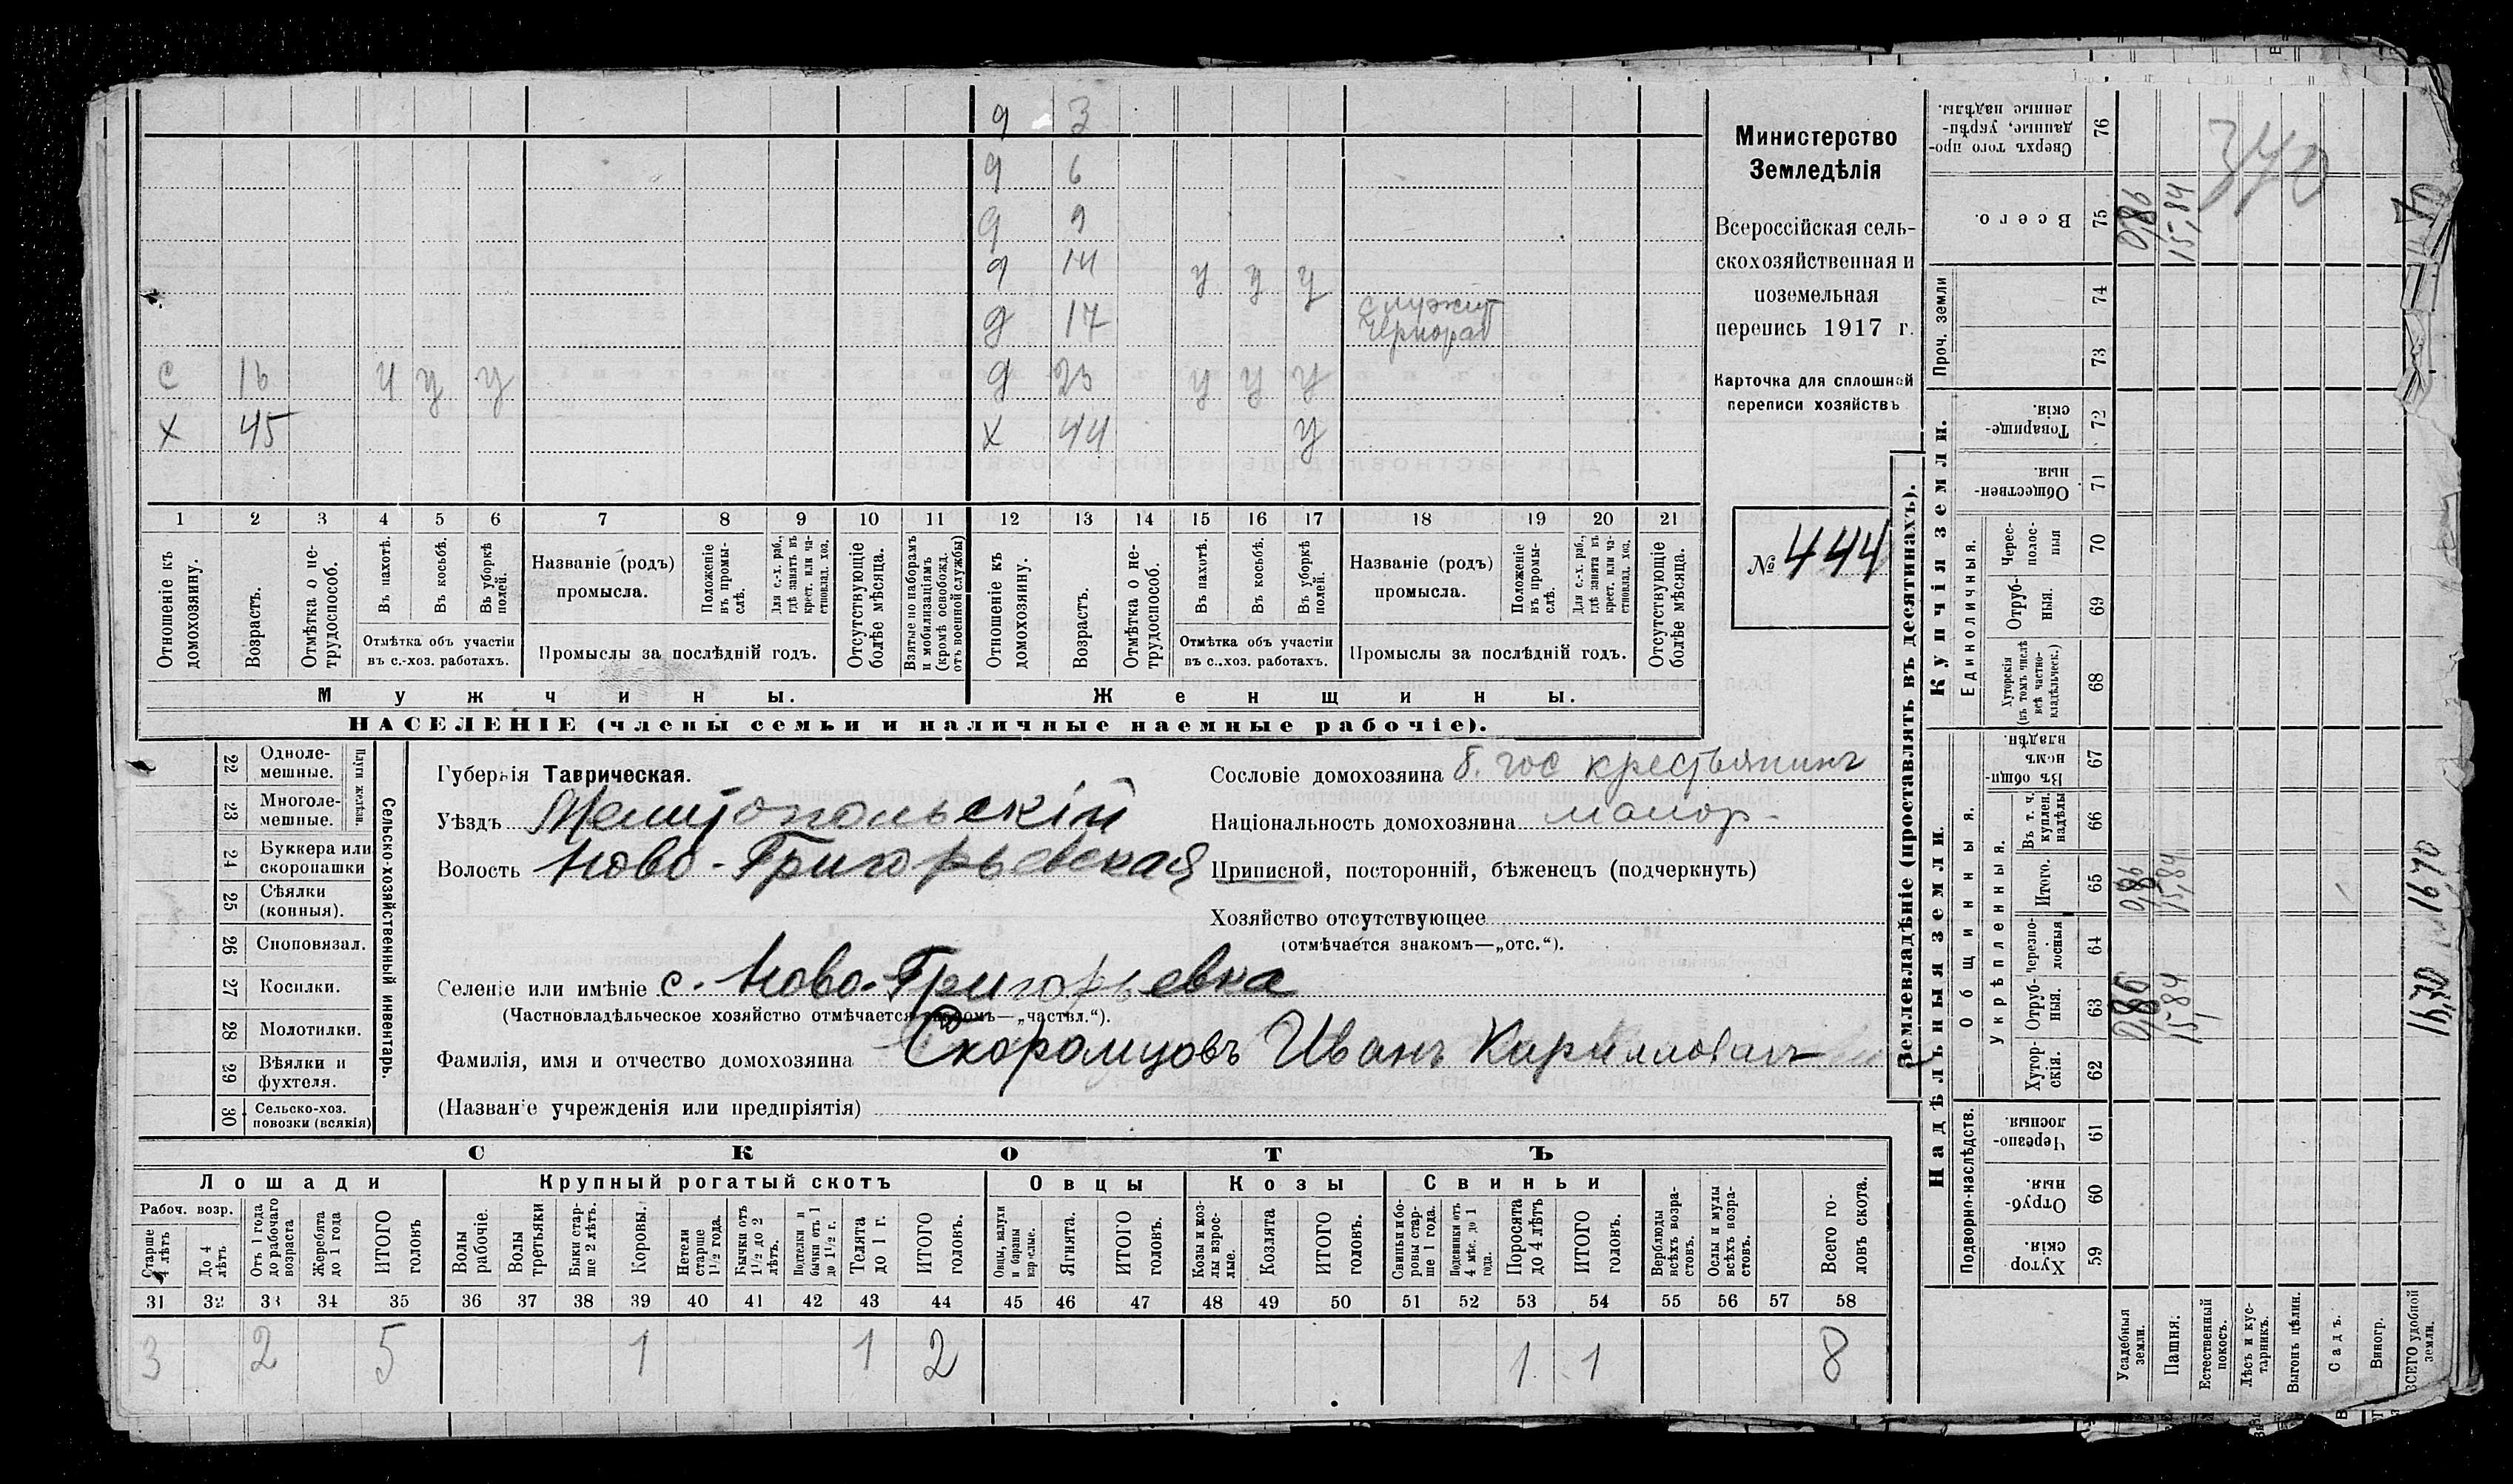 9 3
9 6
9 9
9 14 у у у
9 17 служит
чернораб
с 16 ч у у 9 23 у у у
х 45 х 44 у
1 2 3 4 5 6 7 8 9 10 11 12 13 14 15 16 17 18 19 20 21
Отношеніе къ домохозяину.
Возрастъ.
Отмѣтка о не-
трудоспособ.
Въ пахотѣ.
Въ косьбѣ.
Въ уборкѣ
полей.
Отмѣтка объ участіи
въ с.-хоз. работахъ.
Названіе (родъ)
промысла.
Положеніе
въ промы-
слѣ.
Для с.-х. раб.,
гдѣ занятъ въ
крест. или ча-
стновлад. хоз.
Промыслы за послѣдній годъ.
Отсутствующіе
болѣе мѣсяца.
Взятые по наборамъ
и мобилизаціямъ
(кромѣ освобожд.
отъ военной службы)
Отношеніе къ
домохозяину.
Возрастъ.
Отмѣтка о не-
трудоспособ.
Въ пахотѣ.
Въ косьбѣ.
Въ уборкѣ
полей.
Отмѣтка объ участіи
въ с.-хоз. работахъ.
Названіе (родъ)
промысла.
Положеніе
въ промы-
слѣ.
Для с.-х. раб.,
гдѣ занята въ
крест. или ча-
стновлад. хоз.
Промыслы за послѣдній годъ.
Отсутствующіе
болѣе мѣсяца.
Мужчины. Женщины.
НАСЕЛЕНІЕ (члены семьи и наличные наемные рабочіе).
Министерство
Земледѣлія
Всероссійская сель-
скохозяйственная и
поземельная
перепись 1917 г.
Карточка для сплошной
переписи хозяйствъ
№ 444
22 Одноле-
мешные.
23 Многоле-
мешные.
Плуги желѣзн.
24 Буккера или
скоропашки
25 Сѣялки
(конныя).
26 Сноповязал.
27 Косилки.
28 Молотилки.
29 Вѣялки и
фухтеля.
30 Сельско-хоз.
повозки (всякія)
Сельско-хозяйственный инвентарь.
Губернія Таврическая.
Уѣздъ Мелитопольскій
Волость Ново-Григорьевская
Селеніе или имѣніе с. Ново-Григорьевка
(Частновладѣльческое хозяйство отмѣчается знакомъ—„частвл.“).
Фамилія, имя и отчество домохозяина Скоромцовъ Иванъ Кариллович
(Названіе учрежденія или предпріятія)
Сословіе домохозяина б. гос крестьянинъ
Національность домохозяина малор-
Приписной, посторонній, бѣженецъ (подчеркнуть)
Хозяйство отсутствующее
(отмѣчается знакомъ—„отс.“).
СКОТЪ
Лошади Крупный рогатый скотъ Овцы Козы Свиньи
Рабоч. возр.
Старше
4 лѣтъ
До 4
лѣтъ.
Отъ 1 года
до рабочаго
возраста
Жеребята
до 1 года
ИТОГО
головъ
Волы
рабочіе.
Волы
третьяки
Быки стар-
ше 2 лѣтъ.
Коровы.
Нетели
старше
1½ года.
Бычки отъ
1½ до 2
лѣтъ.
Подтелки и
бычки отъ 1
до 1½ г.
Телята
до 1 г.
ИТОГО
головъ.
Овцы, валухи
и бараны
взрослые.
Ягнята.
ИТОГО
головъ.
Козы и коз-
лы взрос-
лые.
Козлята
ИТОГО
головъ.
Свиньи и бо-
ровы стар-
ше 1 года.
Подсвинки отъ
4 мѣс. до 1
года.
Поросята
до 4 лѣтъ
ИТОГО
головъ.
Верблюды
всѣхъ возра-
стовъ.
Ослы и мулы
всѣхъ возра-
стовъ.
Всего го-
ловъ скота.
31 32 33 34 35 36 37 38 39 40 41 42 43 44 45 46 47 48 49 50 51 52 53 54 55 56 57 58
3 2 5 1 1 2 1 1 8
Землевладѣніе (проставлять въ десятинахъ).
Надѣльныя земли. Купчія земли. Проч. земли
Подворно-наслѣдств. Общинныя. Единоличныя.
Укрѣпленныя.
Хутор
скія. 59
Отруб-
ныя. 60
Черезпо-
лосныя. 61
Хутор-
скія. 62
Отруб-
ныя. 63
Черезпо-
лосныя 64
Итого. 65
Въ т. ч.
куплен.
надѣлы 66
Въ общи-
номъ
владѣн. 67
Хуторскія
(въ томъ числѣ
всѣ частно-
владѣльческ.) 68
Отруб-
ныя. 69
Черес-
полос-
ныя 70
Обществен-
ныя. 71
Товарище-
скія. 72
73 74
Всего. 75
Сверхъ того про-
данные, укрѣп-
ленные надѣлы. 76
Усадебныя
земли. 0,86 0,86 0,86
Пашня. 15,84 15,84 15,84
Естественный
покосъ.
Лѣсъ и кус-
тарникъ.
Выгонъ цѣлин.
Садъ.
Виногр.
ВСЕГО удобной
земли. 16,70 16,70
340